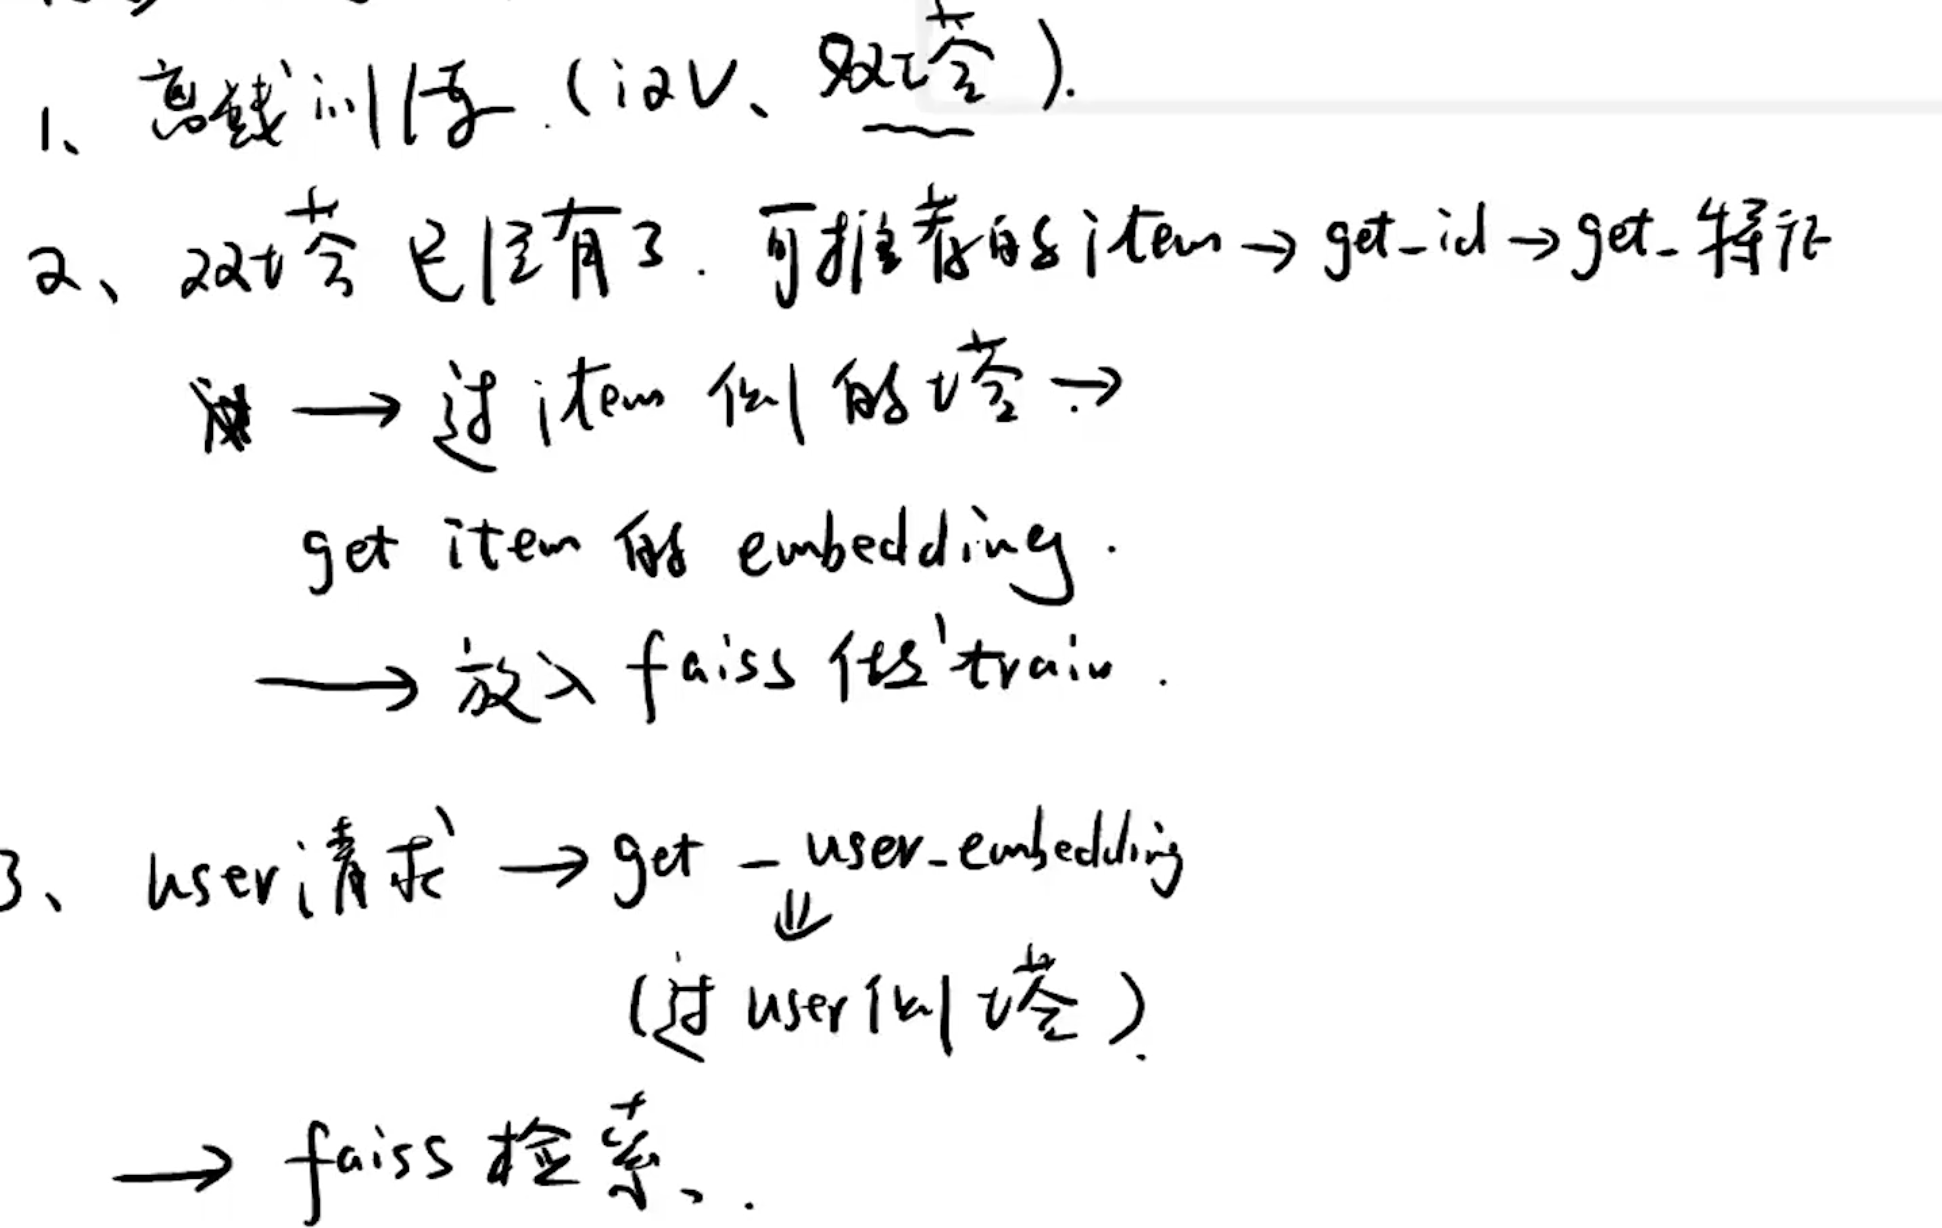 1、离线训练.(i2V、双塔).
2、双塔已经有了. 可推荐的item→get_id→get_特征
→过item侧的塔→
get item的embedding.
→放入faiss做train.
3、user请求→get_user_embedding
⇓
(过user侧塔).
→faiss检索、.